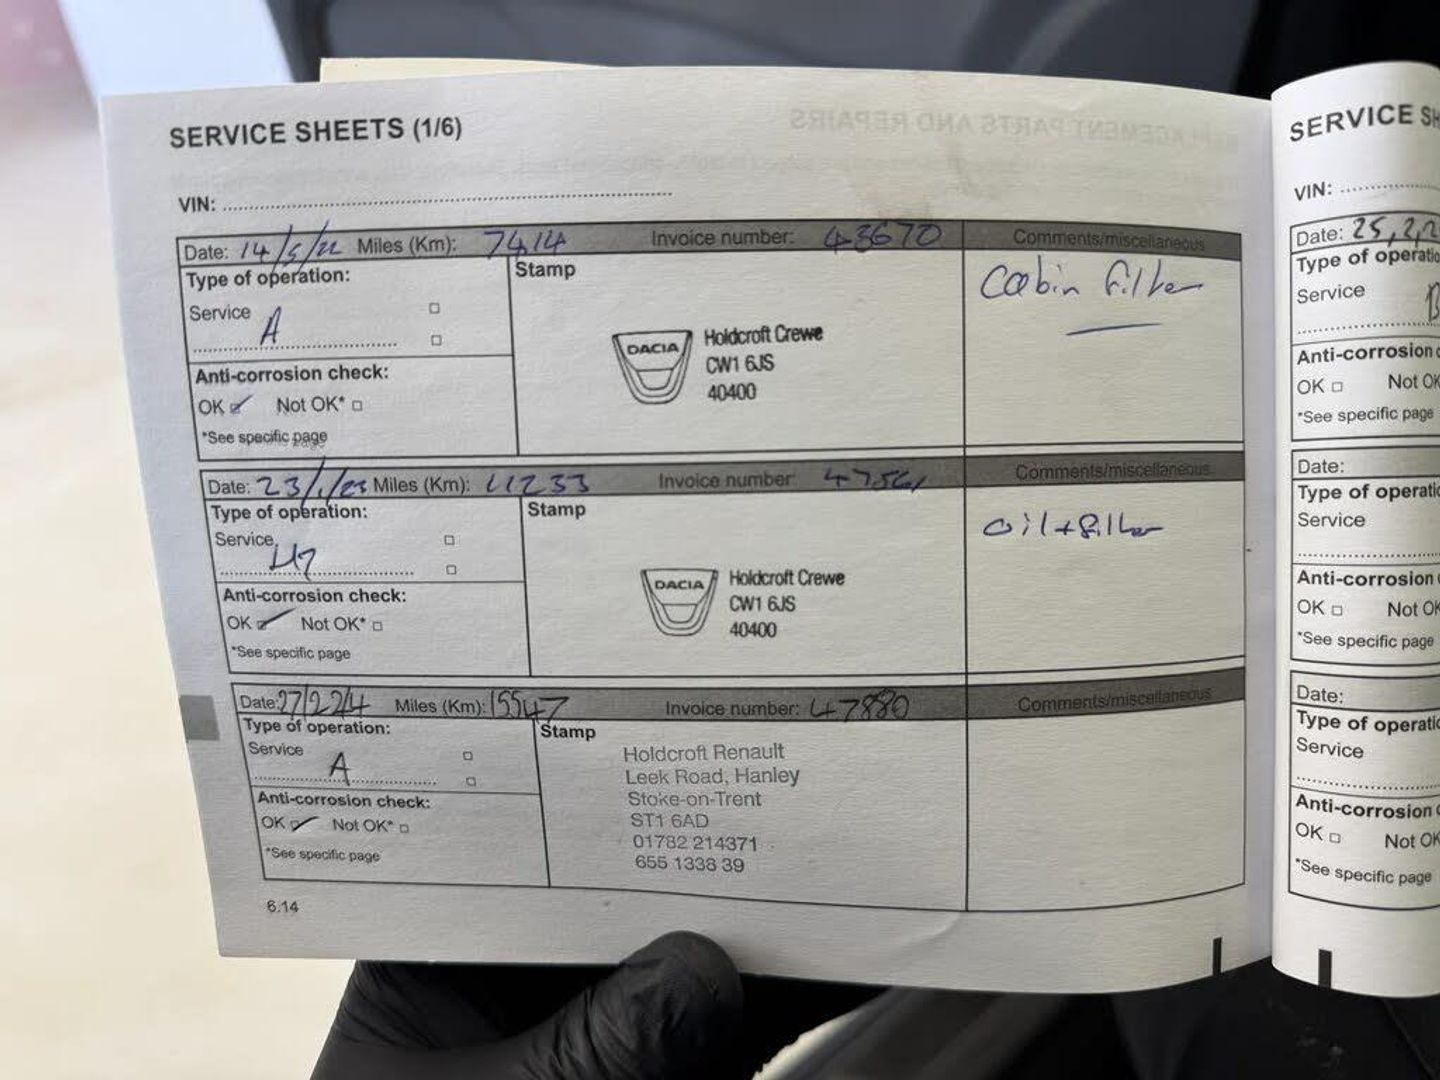 SERVICE SHEETS (1/6)
VIN:
Date: 14/5/22 Miles (Km): 7414 Invoice number: 43670 Comments/miscellaneous
Type of operation:
Stamp
Cabin filter
Service
A
Anti-corrosion check:
OK Not OK*
*See specific page
DACIA
Holdcroft Crewe
CW1 6JS
40400
Date: 23/1/23 Miles (Km): 11233 Invoice number: 47561 Comments/miscellaneous
Type of operation:
Stamp
oil + filter
Service
Anti-corrosion check:
OK Not OK*
*See specific page
DACIA
Holdcroft Crewe
CW1 6JS
40400
Date: 27/2/24 Miles (Km): 15547 Invoice number: 47880 Comments/miscellaneous
Type of operation:
Stamp
Service
A
Anti-corrosion check:
OK Not OK*
*See specific page
Holdcroft Renault
Leek Road, Hanley
Stoke-on-Trent
ST1 6AD
01782 214371
655 1338 39
6.14
SERVICE SH
VIN:
Date: 25,2,2
Type of operatio
Service B
Anti-corrosion
OK Not OK
*See specific page
Date:
Type of operatio
Service
Anti-corrosion
OK Not OK
*See specific page
Date:
Type of operatio
Service
Anti-corrosion
OK Not OK
*See specific page